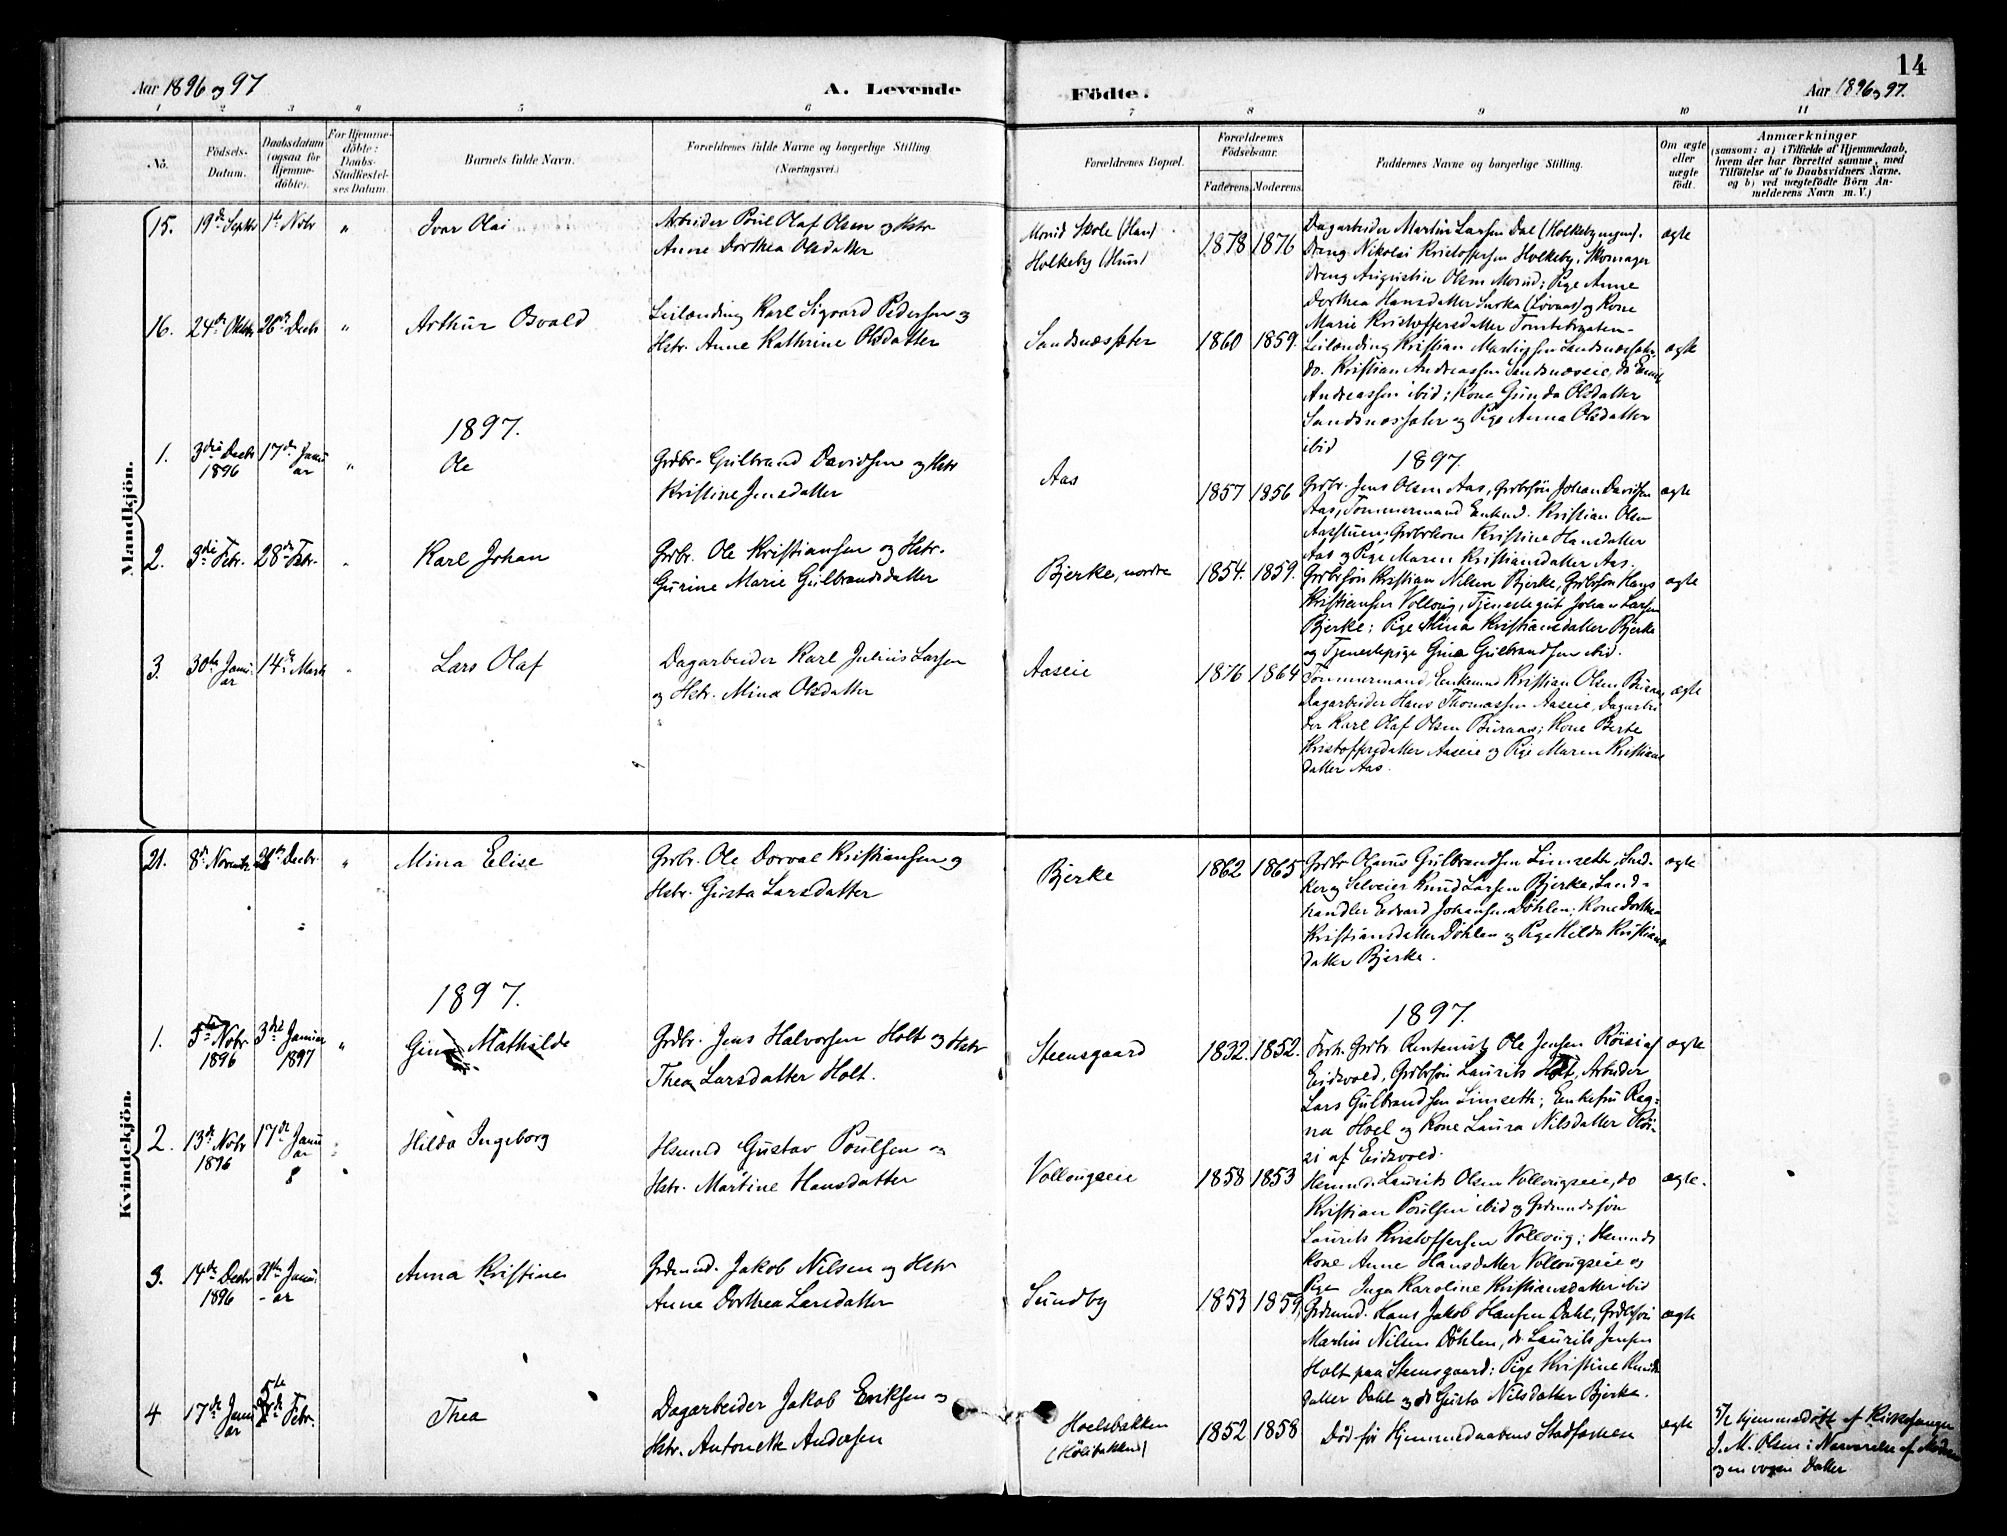 14
Aar 1896 og 97
A. Levende
Födte.
Aar 1896 og 97.
1 2 3 4 5 6 7 8 9 10 11
No.
Födsels-
Datum.
Daabsdatum
(ogsaa for
Hjemme-
döbte).
For Hjemme-
döbte:
Daabs-
Stadfæstel-
ses Datum.
Barnets fulde Navn.
Forældrenes fulde Navne og borgerlige Stilling
(Næringsvei.)
Forældrenes Bopæl.
Forældrenes
Födselsaar.
Faderens. Moderens.
Faddernes Navne og borgerlige Stilling.
Om ægte
eller
uægte
födt.
Anmærkninger
(saasom: a) i Tilfælde af Hjemmedaab,
hvem der har forrettet samme, med
Tilföielse af to Daabsvidners Navne.
og b) ved uægtefödte Börn An-
melderens Navn m. V.)
Mandkjön.
15. 19de Septbr 1ste Nobr " Ivar Olai
Arbeider Poul Olaf Olsen og Hstr
Anne Dorthea Olsdatter
Morud Skole (Han)
Holkeby (Hun)
1878 1876
Dagarbeider Martin Larsen Dal (Holkebyeien).
Dreng Nikolai Kristoffersen Holkeby, Skomager
dreng Augustin Olsen Morud; Pige Anne
Dorthea Hansdatter og Kone
Marie Kristoffersdatter
ægte
16. 24de Oktbr 26de Decbr " Arthur Osvald
Leilænding Karl Sigvard Pedersen og
Hstr. Anne Kathrine Olsdatter
Sandnæssæter
1860 1859.
Leilænding Kristian Sandnæssæter,
do. Kristian Andreassen Sandnæseie, do
Andreassen ibid; Kone Gunda Olsdatter
Sandnæssæter og Pige Anna Olsdatter
ibid
ægte
1897.
1897.
1. 3die Decbr 1896 17de Januar " Ole
Grdbr. Gulbrand Davidsen og Hstr
Kristine Jensdatter
Aas
1857 1856
Grdbr. Jens Olsen Aas, Grdbrsön Johan Davidsen
Aas, Tömmermand Enkmd. Kristian Olsen
Aasstuen, Grdbrkone Kristine Hansdatter
Aas og Pige Maren Kristiansdatter Aas.
ægte
2. 3die Febr. 28de Febr. " Karl Johan
Grdbr. Ole Kristiansen og Hstr.
Gurine Marie Gulbrandsdatter
Bjerke, nordre
1854. 1859.
Grdbrsön Kristian Nilsen Bjerke, Grdbrsön Hans
Kristiansen Vollaug, Tjenestegut Johan Larsen
Bjerke; Pige Mina Kristiansdatter Bjerke
og Tjenestepige Gina Gulbrandsen ibid.
ægte
3. 30te Januar 14de Marts " Lars Olaf
Dagarbeider Karl Julius Larsen
og Hstr. Mina Olsdatter
Aaseie
1876 1864
Tömmermand, Enkemnd Kristian Olsen
Dagarbeider Hans Thomassen Aaseie, Dagarbei
der Karl Olaf Olsen Buraas; Kone Berte
Kristoffersdatter Aaseie og Pige Maren Kristians
datter Aas.
ægte
Kvindekjön.
21. 8de Novembr 26de Decbr. " Mina Elise
Grdbr. Ole Dorval Kristiansen og
Hstr. Gusta Larsdatter
Bjerke
1862 1865
Grdbr Olaus Gulbrandsen Limseth, Snd-
ker og Selveier Knud Larsen Bjerke, Land-
handler Edvard Johansen Döhlen; Kone Dorthea
Kristiansdatter Döhlen og Pige Hilda Kristians
datter Bjerke.
ægte
1897.
1897.
1. 5te Nobr 1896 3die Januar 1897 " Gina Mathilde
Grdbr. Jens Halvorsen Holt og Hstr
Thea Larsdatter Holt.
Steensgaard
1832 1852.
Forh. Grdbr. Rentenist Ole Jensen Röisi af
Eidsvold, Grdbrsön Laurits Holt, Arbeider
Lars Gulbrandsen Limseth; Enkefru Rag-
na Hoel og Kone Laura Nilsdatter Röi-
si af Eidsvold.
ægte
2. 13de Nobr 1896 17de Januar Hilda Ingeborg
Hsmnd Gustav Poulsen og
Hstr. Martine Hansdatter
Vollaugseie
1858 1853
Hsmnd. Laurits Olsen Vollaugseie, do
Kristian Poulsen ibid og Grdmandssön
Laurits Kristoffersen Vollaug; Hsmnds
kone Anne Hansdatter Vollaugseie og
Pige Inga Karoline Kristiansdatter ibid
ægte.
3. 14de Decbr 1896 31te Januar Anna Kristine
Grdmnd. Jakob Nilsen og Hstr
Anne Dorthea Larsdatter
Sundby
1853 1859.
Grdmnd. Hans Jakob Hansen Dahl, Grdbrsön
Martin Nilsen Döhlen, do Laurits Jensen
Holt paa Steensgaard; Pige Kristine Knuds
datter Dahl og do Gusta Nilsdatter Bjerke.
ægte
4 17de Januar 5te Febr. Thea
Dagarbeider Jakob Eriksen og
Hstr. Antonette Andersen
Hoelsbakken
1852 1858
Död för Hjemmedaabens Stadfæstelse
ægte
5/2 hjemmedöbt af Kirkesanger
J. M. Olsen i Nærværelse af Moderen
og en voxen Datter